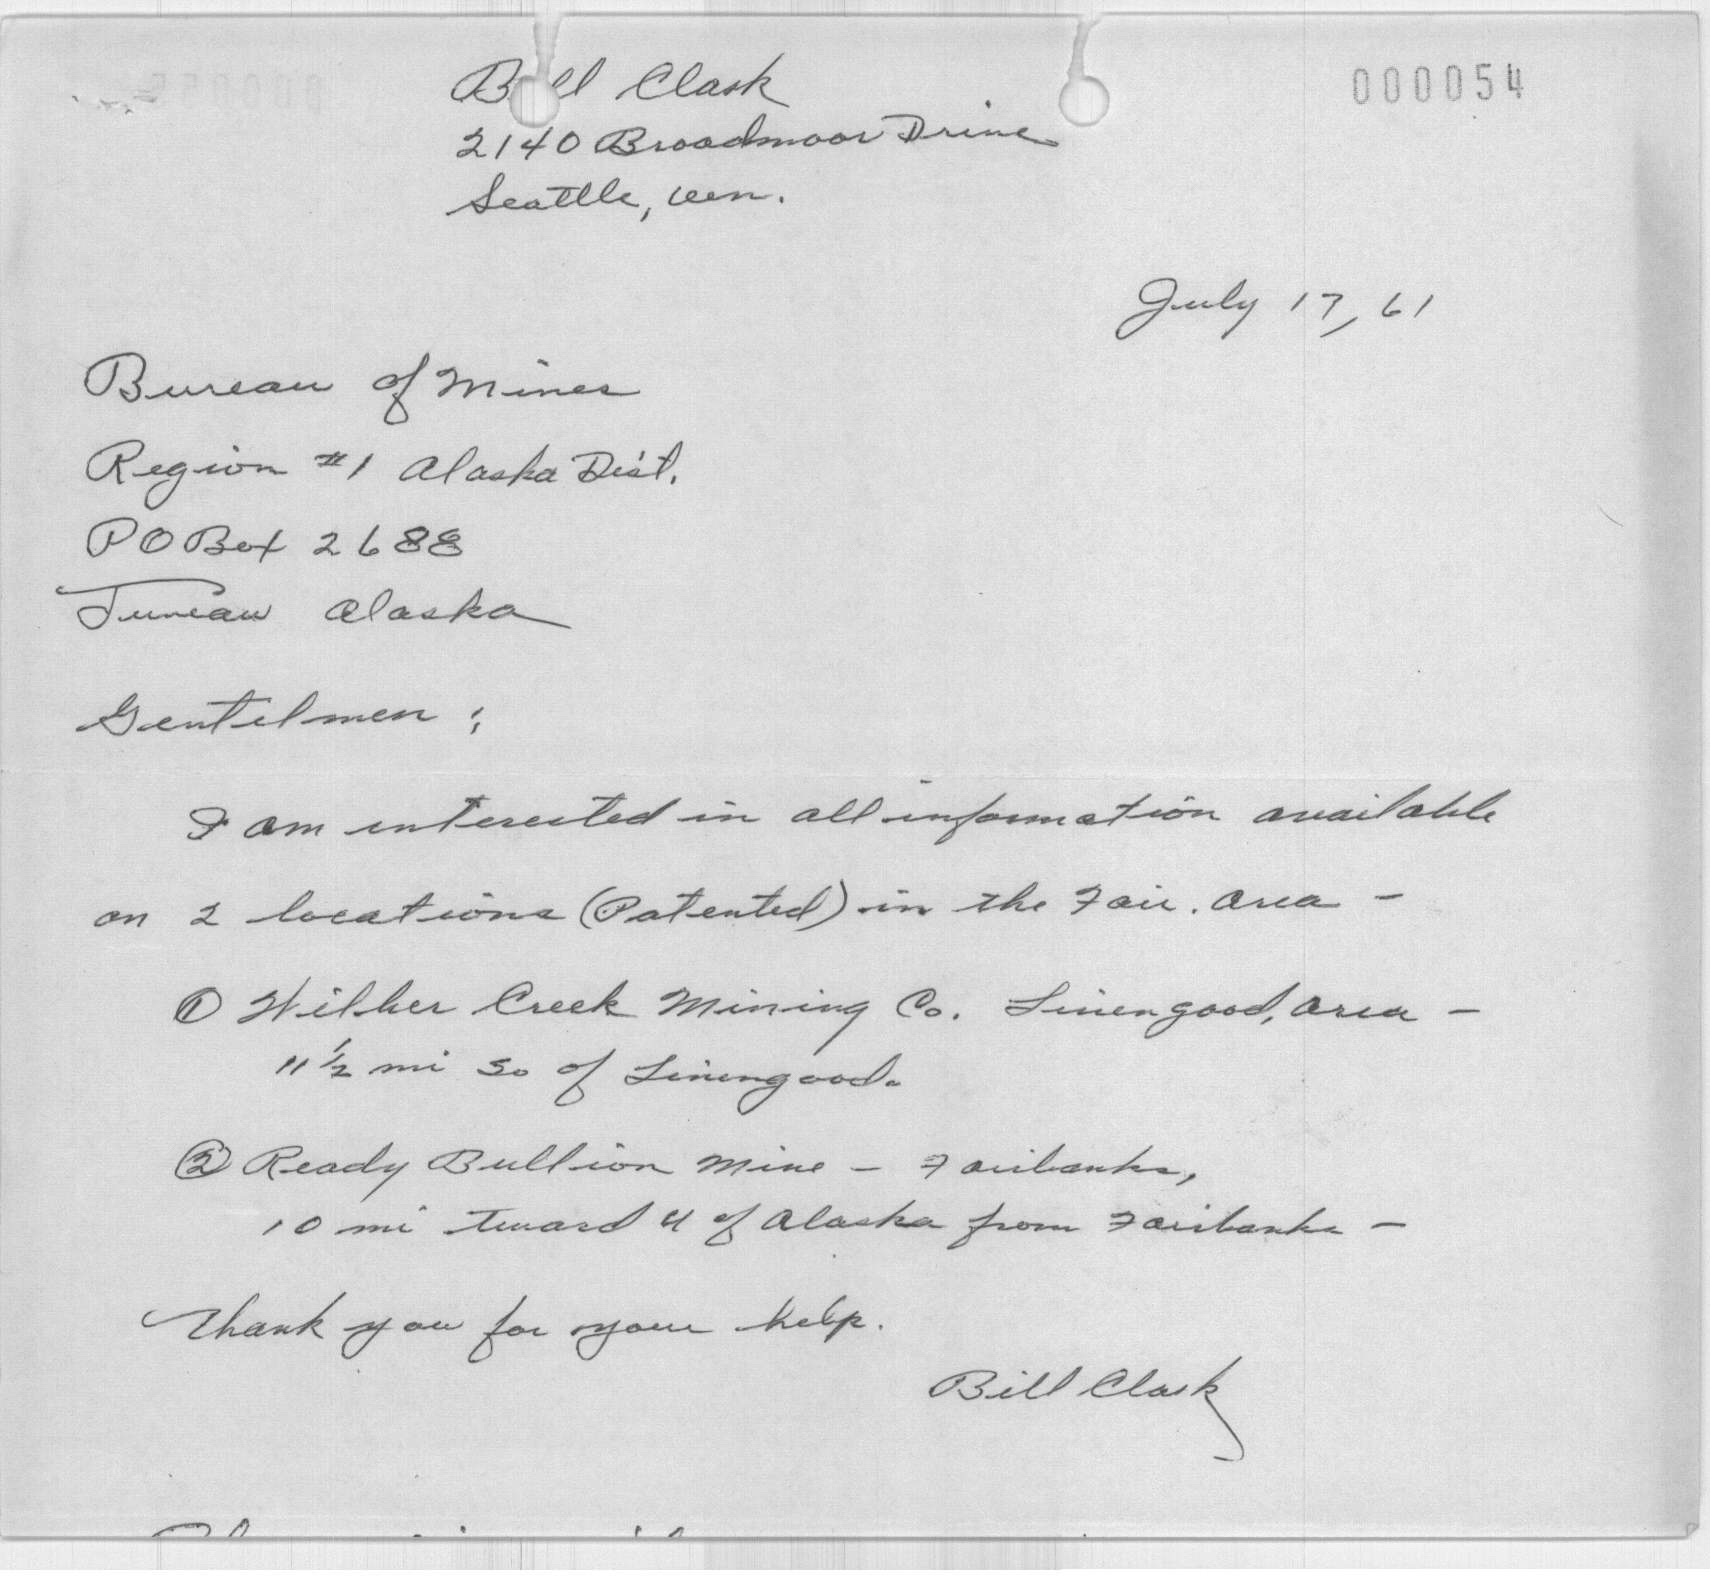 Bill Clark
000054
2140 Broadmoor Drive
Seattle, Wn.
July 17, 61
Bureau of Mines
Region #1 Alaska Dist.
PO Box 2688
Juneau Alaska
Gentelmen:
I am interested in all information available
on 2 locations (Patented) in the Fair. Area -
① Wilber Creek Mining Co. Livengood, Area -
11 ½ mi So of Livengood.
② Ready Bullion Mine - Fairbanks,
10 mi toward U of Alaska from Fairbanks -
Thank you for your help.
Bill Clark